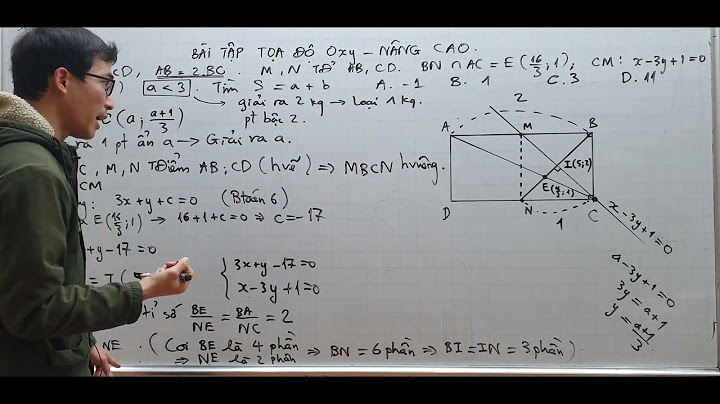 BÀI TẬP TỌA ĐỘ Oxy – NÂNG CAO.
CD, AB = 2.BC. M, N TĐ AB, CD. BN ∩ AC = E(16/3; 1), CM: x-3y+1=0
a < 3. Tìm S = a + b A. -1 B. 1 C. 3 D. 11
giải ra 2 kq → loại 1 kq.
pt bậc 2.
C(a; a+1/3)
ra 1 pt ẩn a → Giải ra a.
C, M, N TĐiểm AB; CD (hvẽ) ⇒ MBCN hvuông.
CM
3x+y+c=0 (Btoán 6)
E(16/3; 1) → 16+1+c=0 ⇒ c=-17
+y-17=0
{ 3x+y-17=0
x-3y+1=0
tỉ số BE/NE = BA/NC = 2
NE. (Coi BE là 4 phần ⇒ BN = 6 phần ⇒ BI = IN = 3 phần).
⇒ NE là 2 phần
2
A M B
I(5;2)
E(16/3;1)
D N C
1
x-3y+1=0
a-3y+1=0
3y = a+1
y = a+1/3